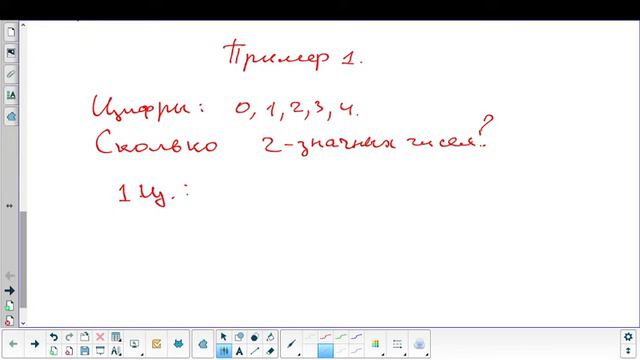 Пример 1.
Цифры: 0, 1, 2, 3, 4.
Сколько 2-значных чисел?
1 ц. :